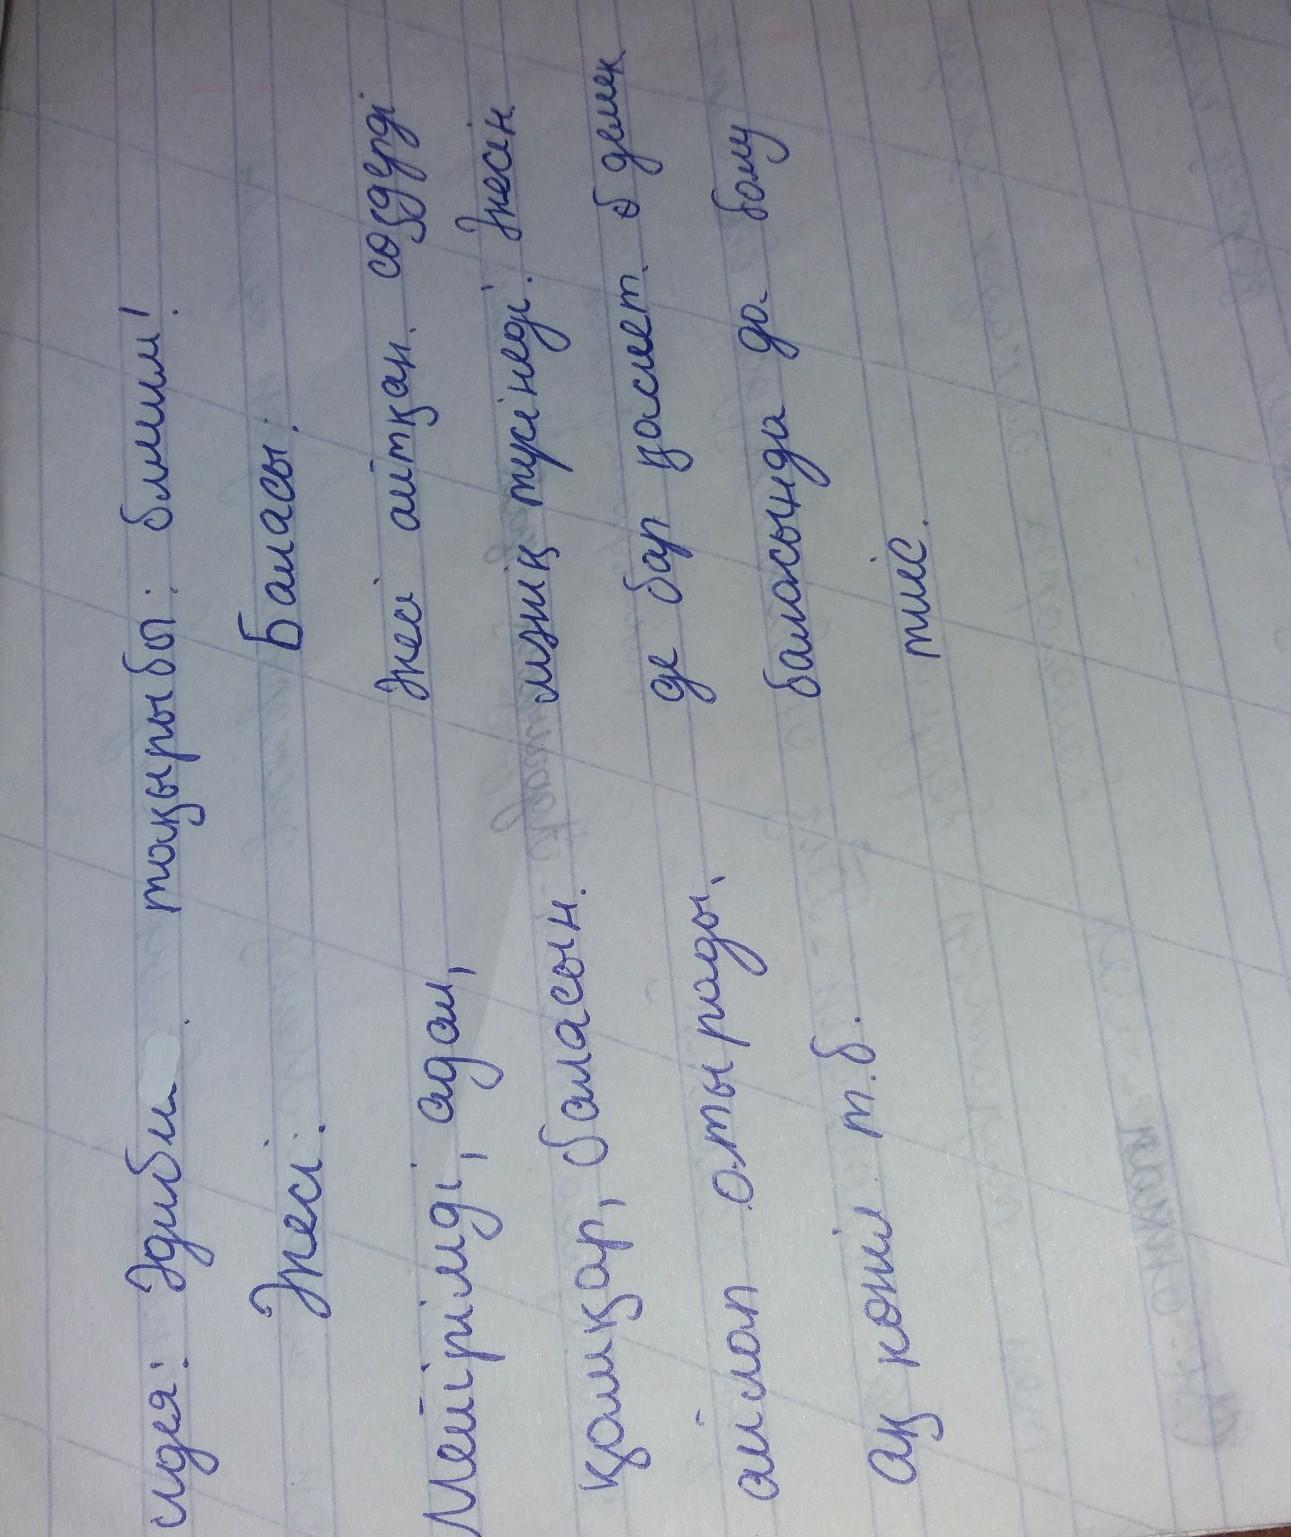 идея: Әдеби тақырыбы: білім!
Әкесі: Баласы:
Мейірімді, адал, Әкесі айтқан сөздерді
қамқар, баласын мәнін түсінеді. Әкесін
ойлап отырады, де бар қасиет. б демек
ақ көңіл т.б. баласында да болу
тиіс.